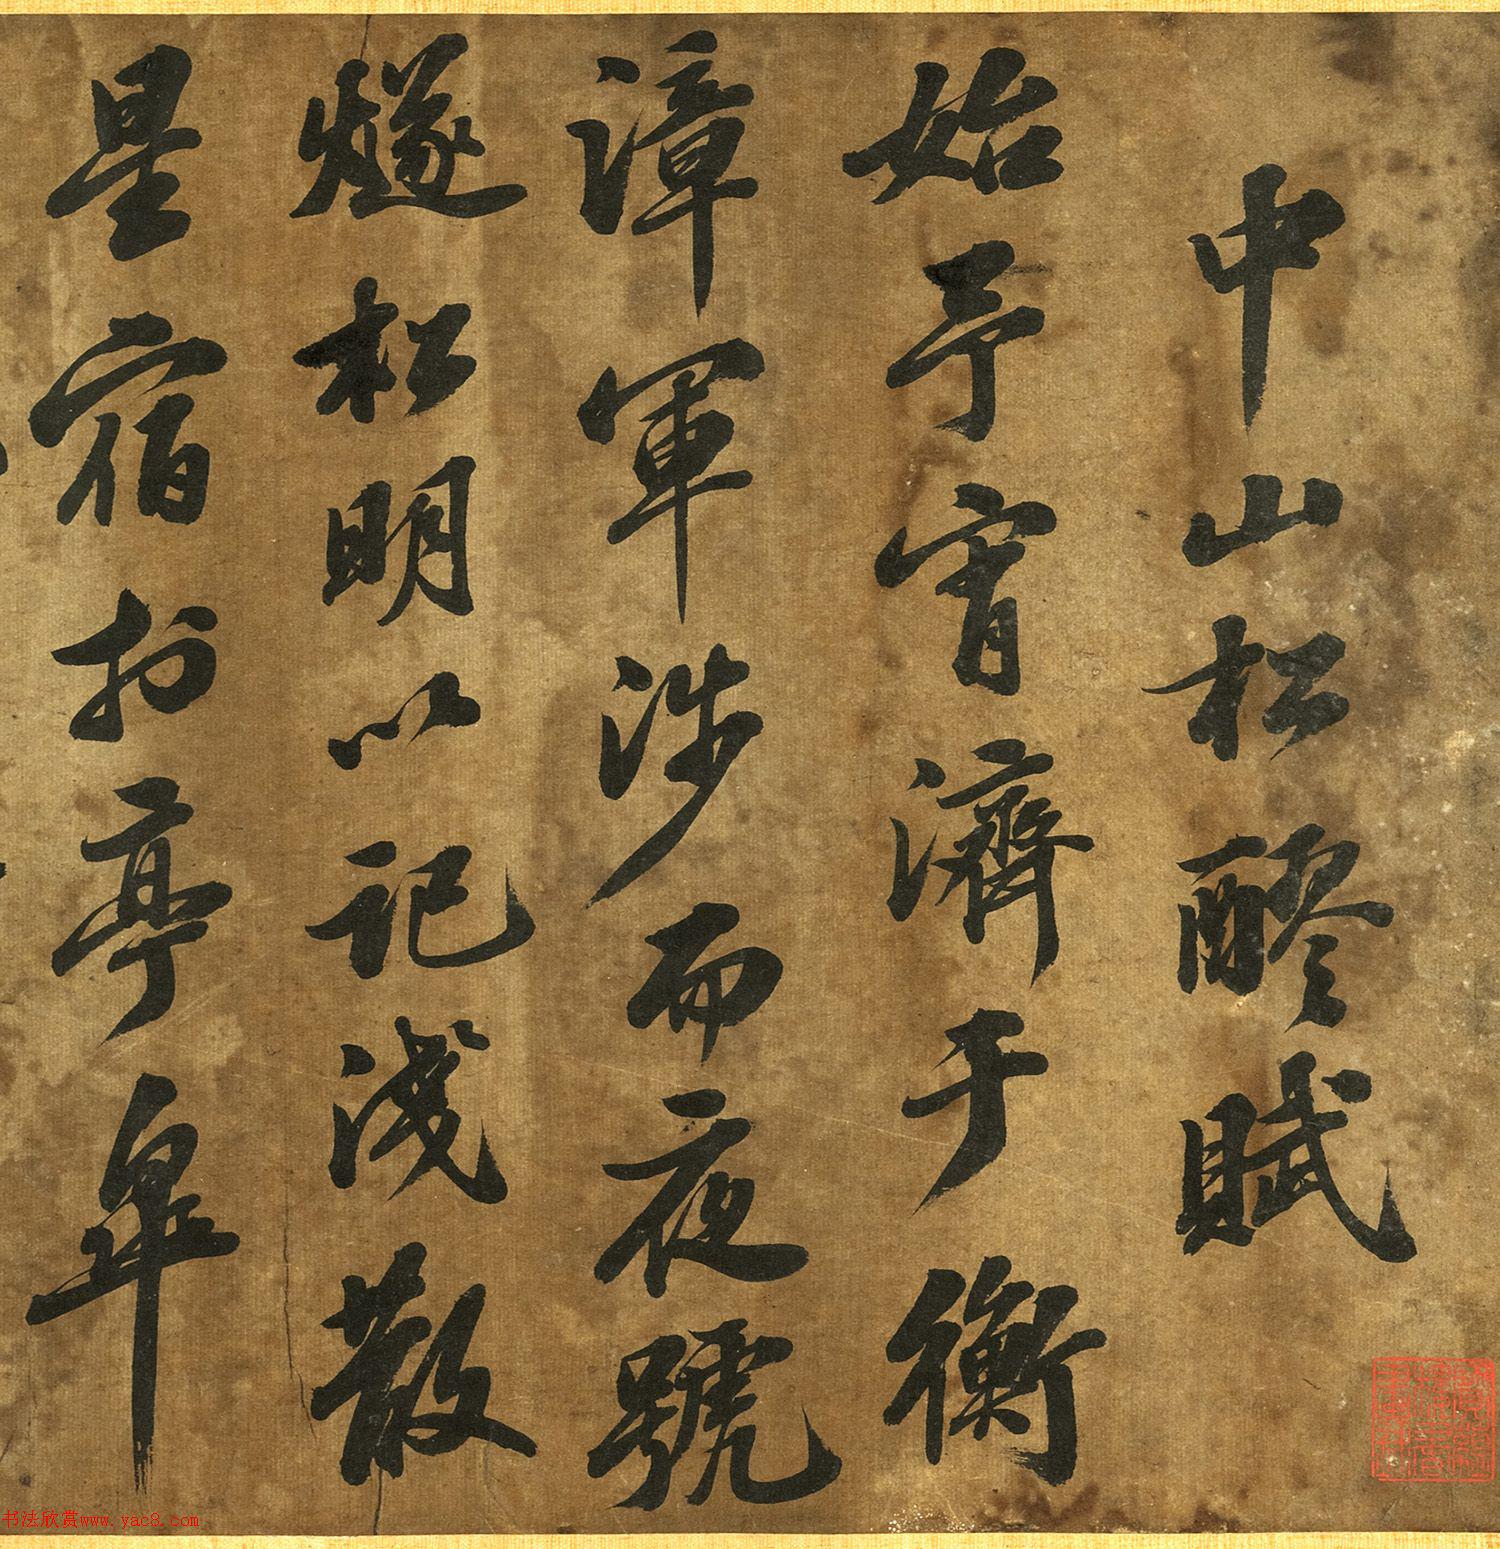 中山松醪賦
始予宵濟于衡
漳軍涉而夜號
燧松明以記淺散
星宿於亭皐
书法欣赏www.yac8.com